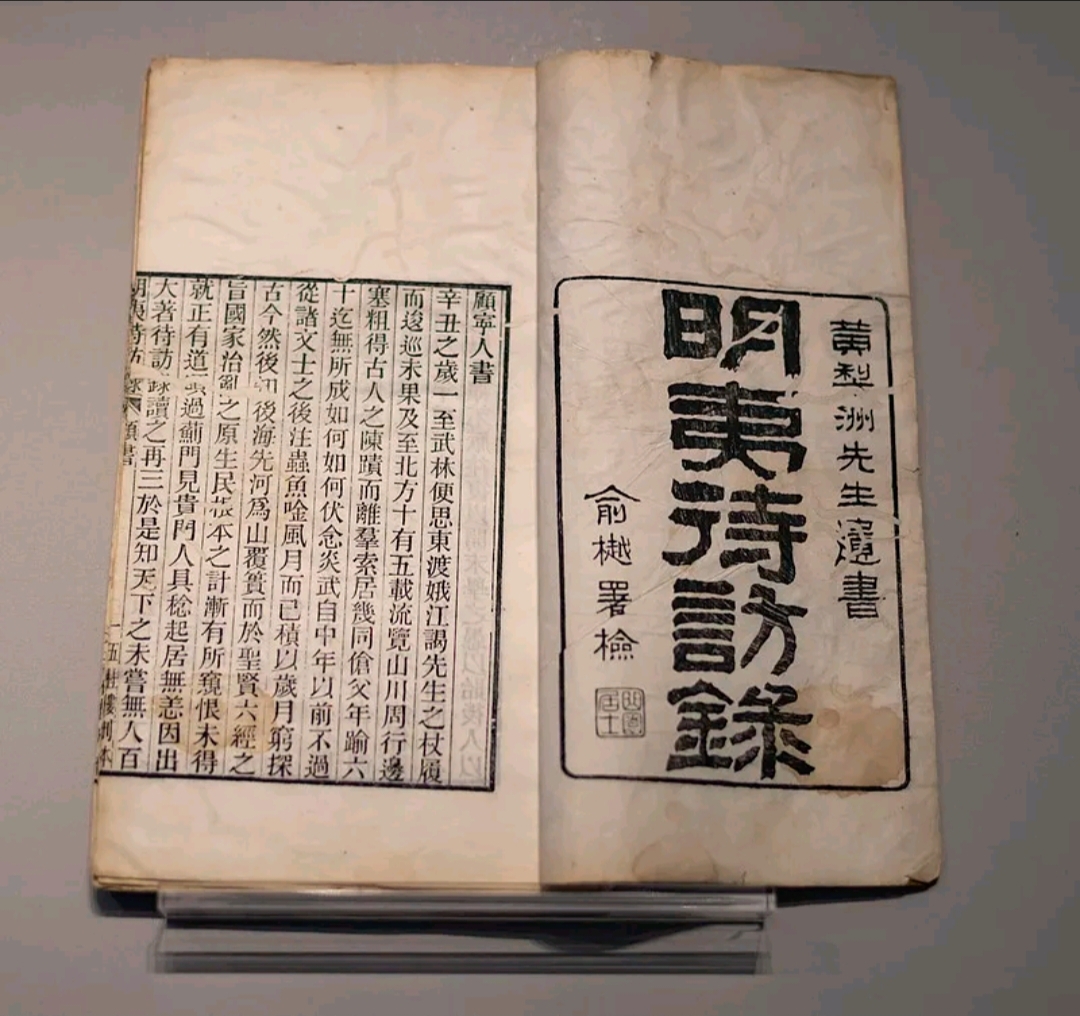 黃梨洲先生遺書
明夷待訪錄
俞樾署檢
曲園居士
顧寧人書
辛丑之歲一至武林便思東渡娥江謁先生之杖履
而逡巡未果及至北方十有五載流覽山川周行邊
塞粗得古人之陳蹟而離羣索居幾同傖父年踰六
十迄無所成如何如何伏念炎武自中年以前不過
從諸文士之後注蟲魚唫風月而已積以歲月窮探
古今然後知後海先河爲山覆簣而於聖賢六經之
旨國家治亂之原生民根本之計漸有所窺恨未得
就正有道頃過薊門見貴門人具稔起居無恙因出
大著待訪錄讀之再三於是知天下之未嘗無人百
明夷待訪錄 顧書 一 五桂樓